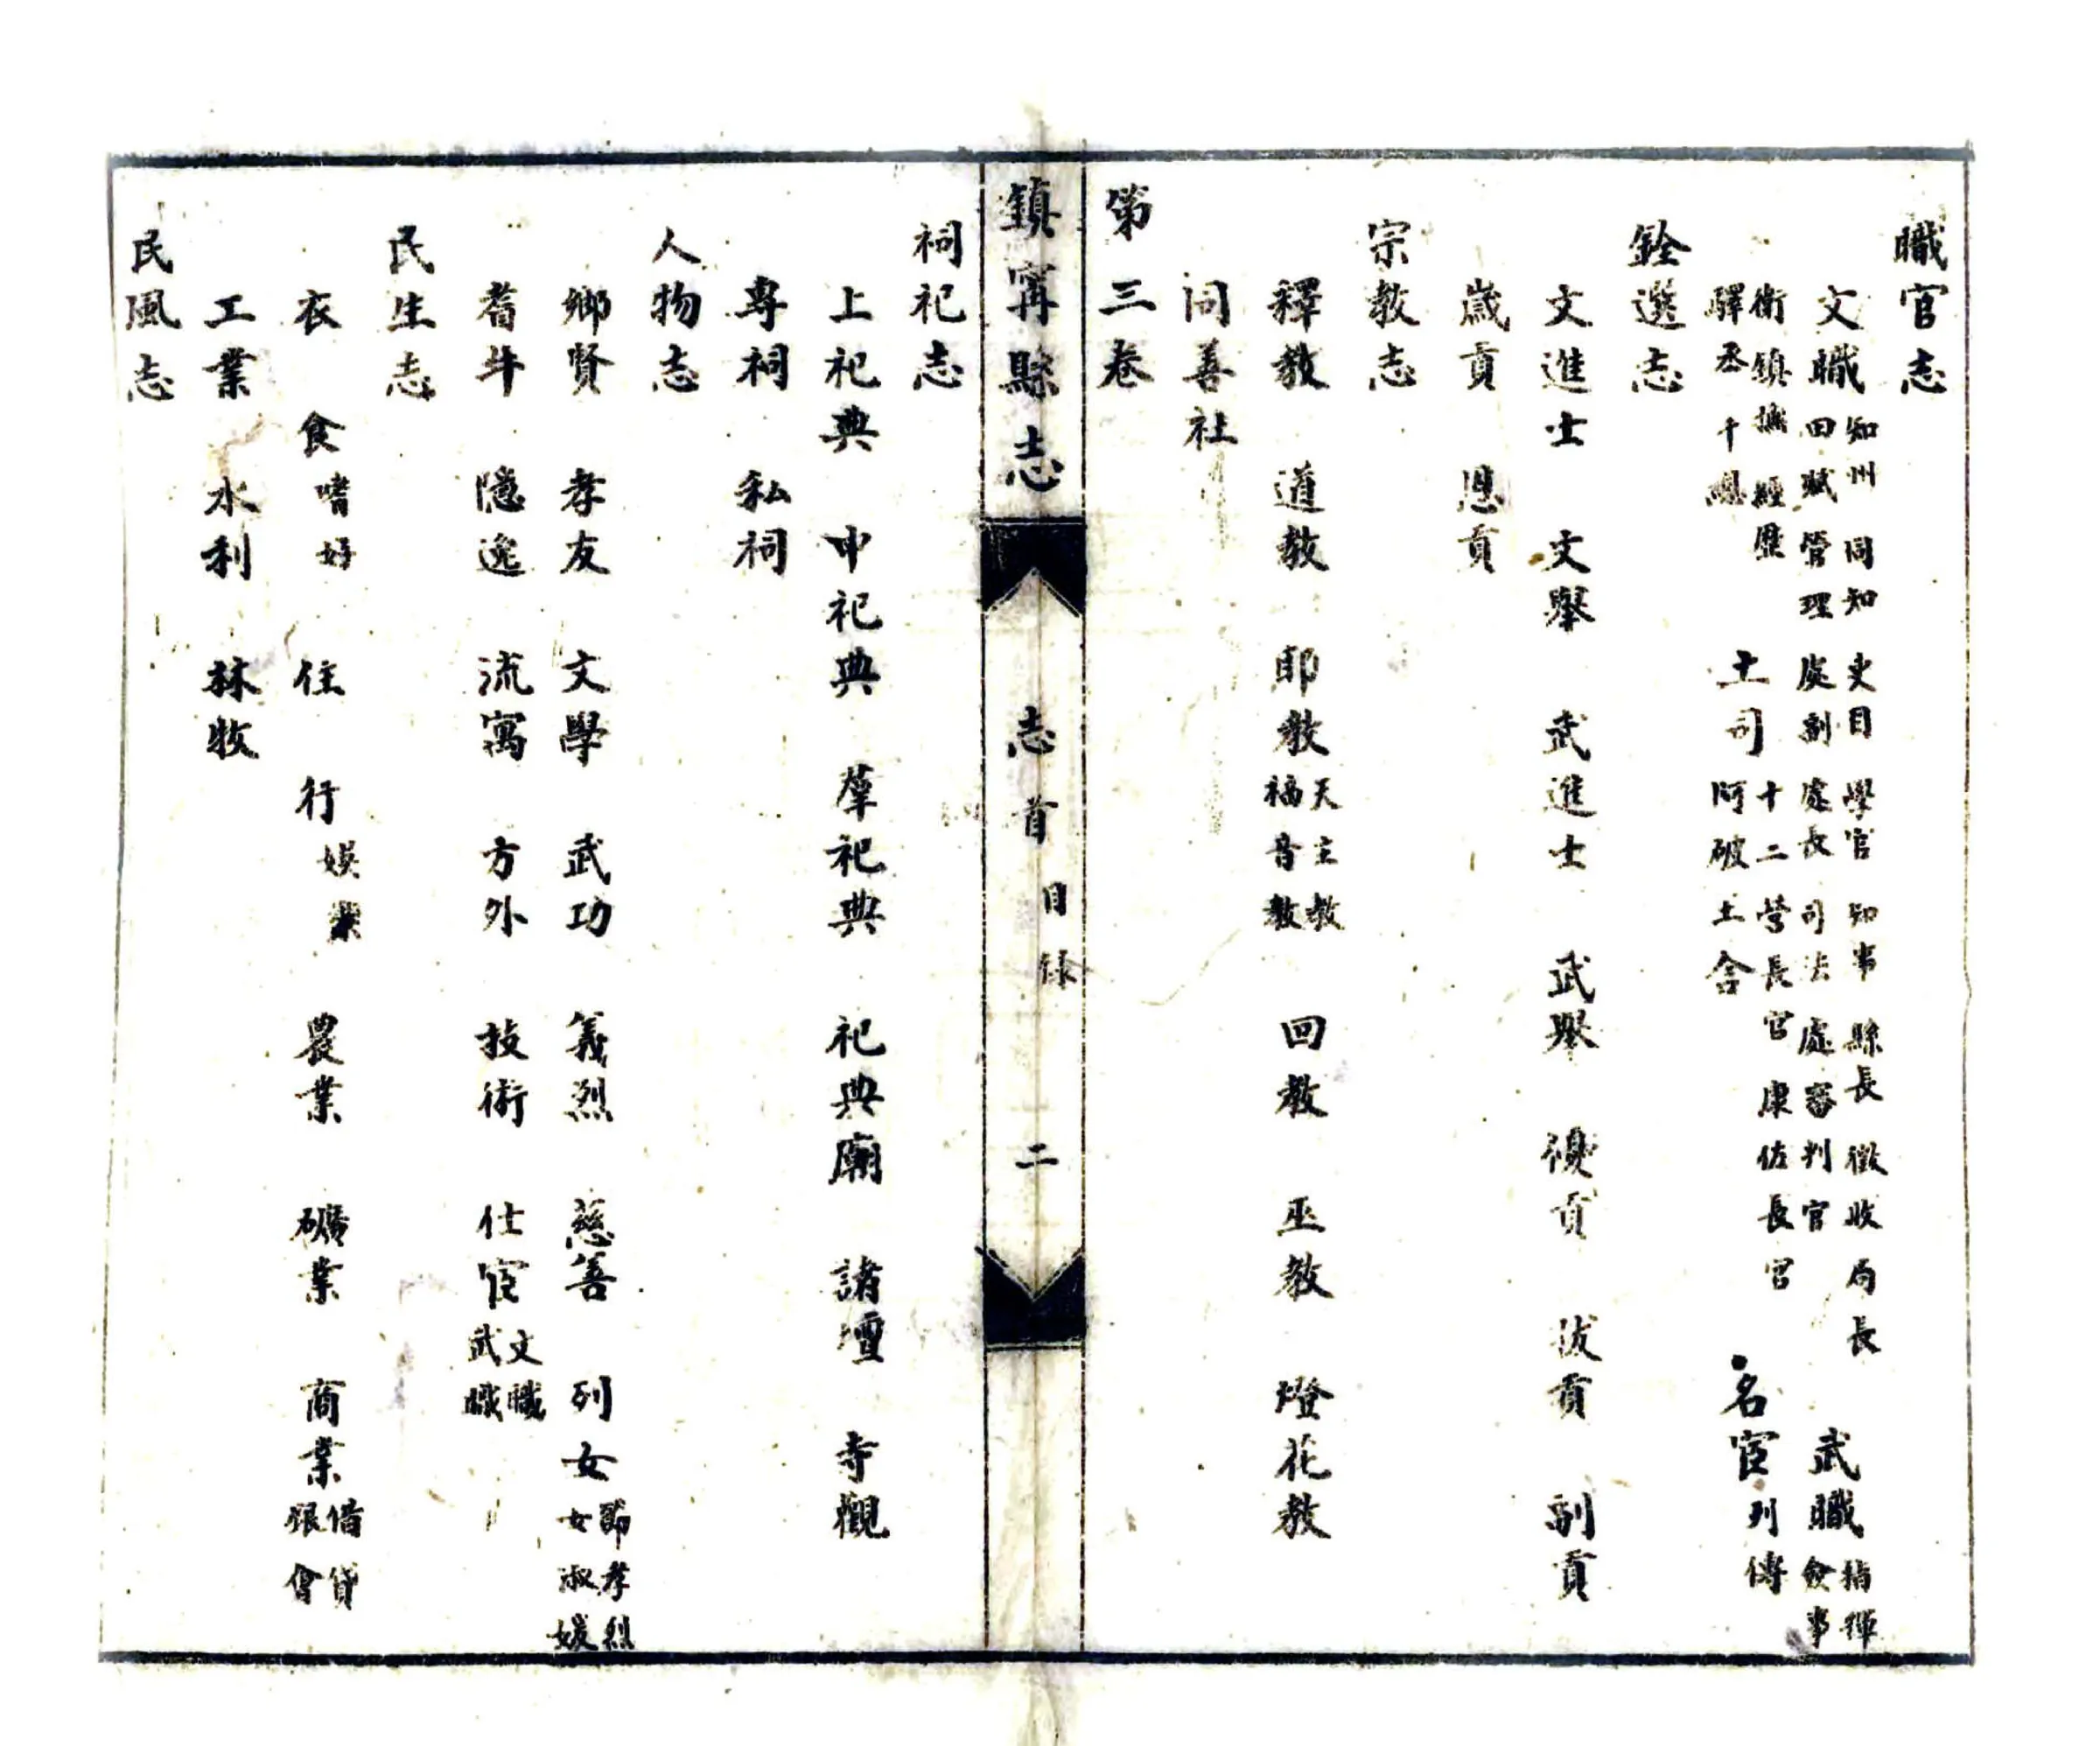 職官志
文職 知州 同知 吏目 學官 知事 縣長 徵收局長
田賦管理處副處長 司法處審判官 武職 指揮
僉事
衛鎮撫 經歷
驛丞 千總 土司 十二營長官 康佐長官
阿破土舍 名宦 列傳
銓選志
文進士 文舉 武進士 武舉 優貢 拔貢 副貢
歲貢 恩貢
宗教志
釋教 道教 耶教 天主教
福音教 回教 巫教 燈花教
同善社
第三卷
鎮寗縣志 志首 目錄 二
祠祀志
上祀典 中祀典 羣祀典 祀典廟 諸壇 寺觀
專祠 私祠
人物志
鄉賢 孝友 文學 武功 義烈 慈善 列女 節孝烈
女淑媛
耆年 隱逸 流寓 方外 技術 仕宦 文職
武職
民生志
衣 食 嗜好 住 行 娛樂 農業 礦業 商業 借貸
銀會
工業 水利 林牧
民風志